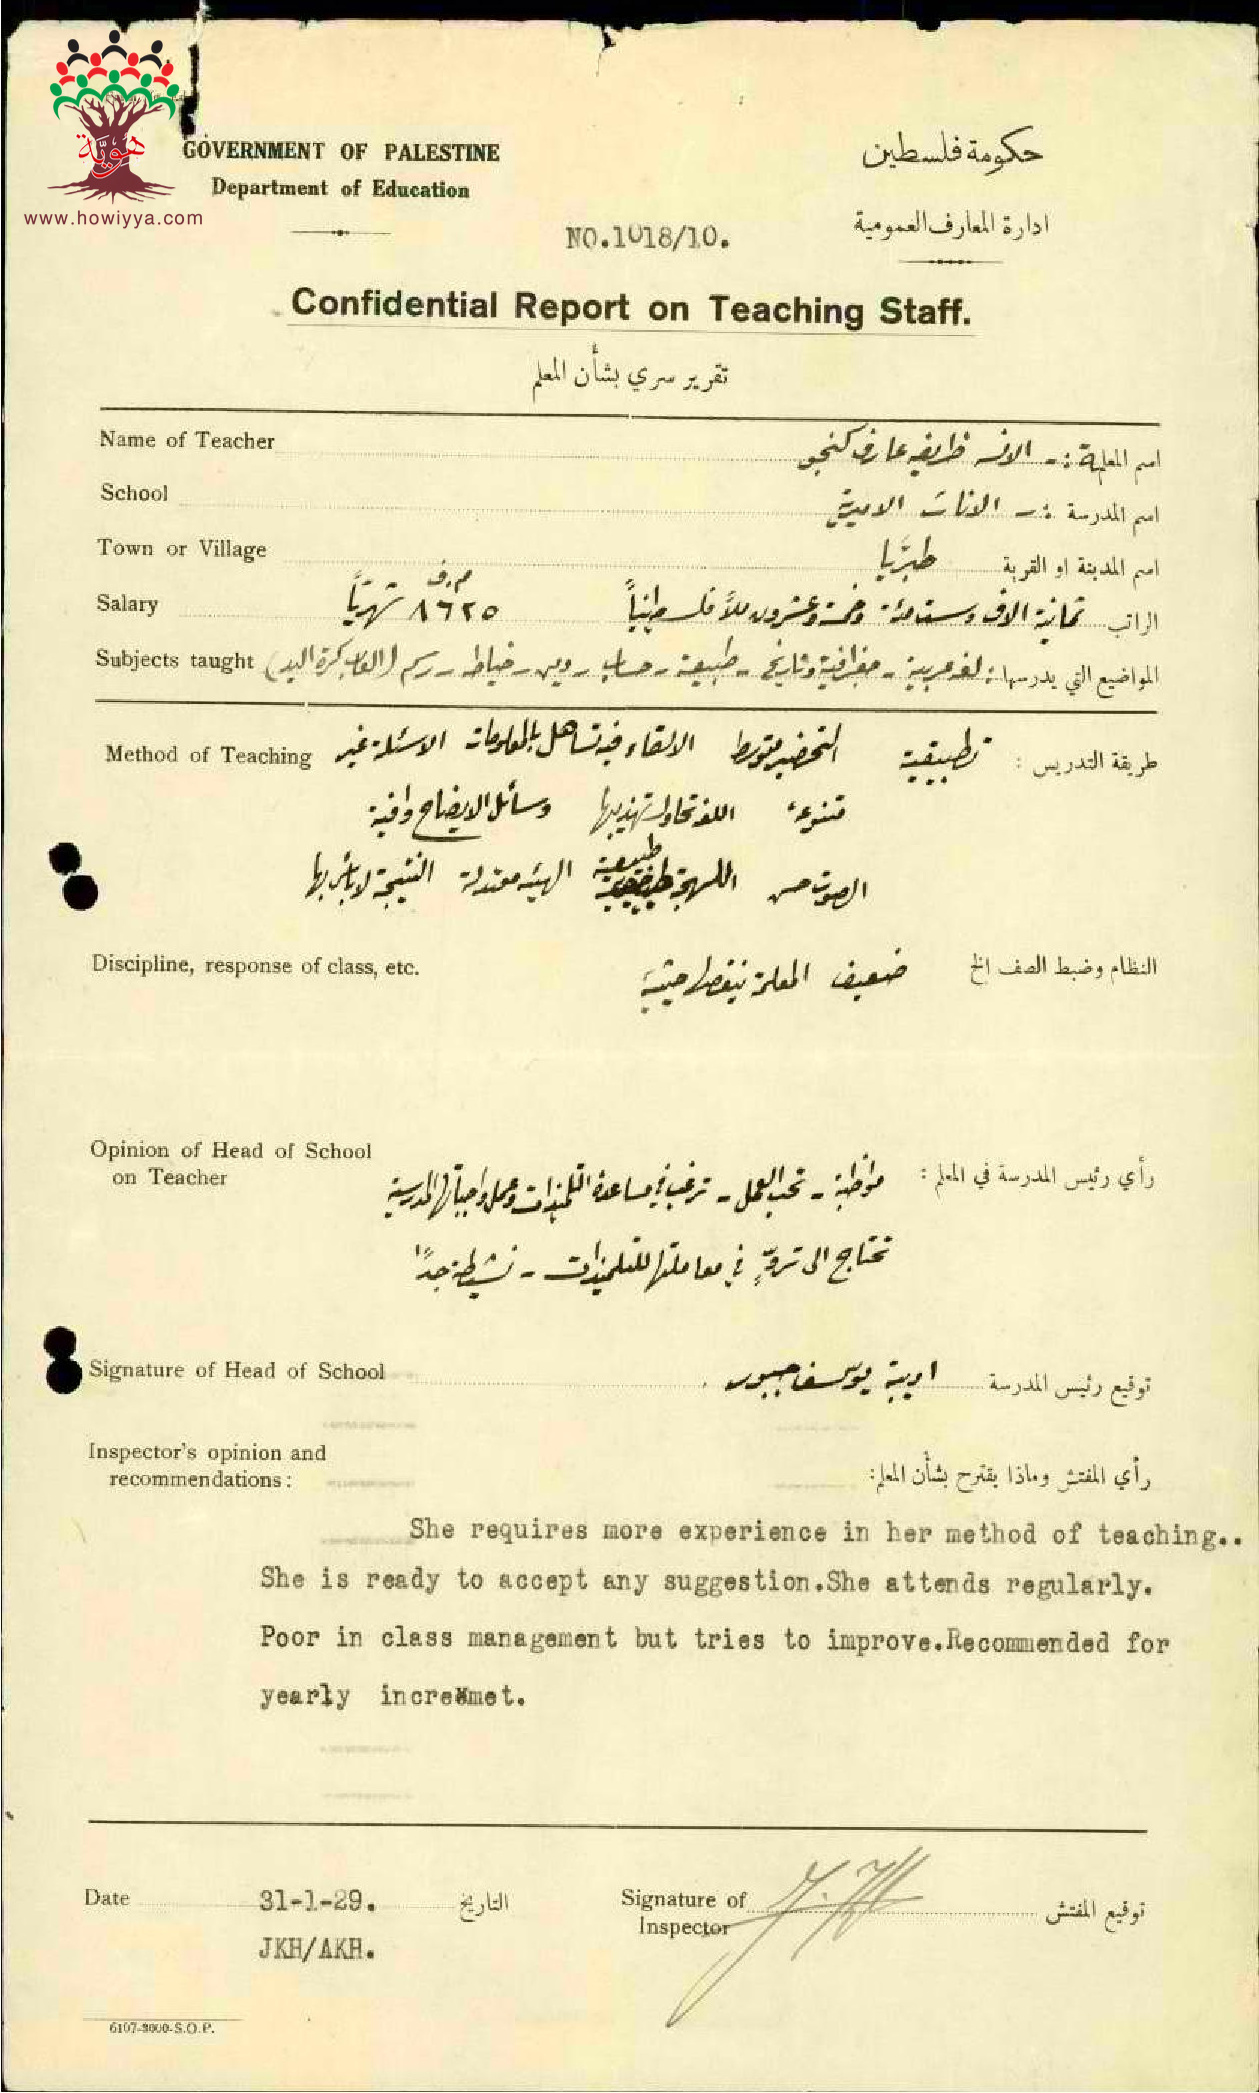 هوية
www.howiyya.com
GOVERNMENT OF PALESTINE
Department of Education
حكومة فلسطين
ادارة المعارف العمومية
NO.1018/10.
Confidential Report on Teaching Staff.
تقرير سري بشأن المعلم
Name of Teacher اسم المعلمة :- الانسه ظريفه عارف كنجو
School اسم المدرسة :- البنات الاميرية
Town or Village اسم المدينة او القرية طبريّا
Salary الراتب ثمانية الاف وستمائة وخمسة وعشرون ملاً فلسطينياً م.ف ٨٦٢٥ شهريّاً
Subjects taught المواضيع التي يدرسها: لغه عربية - جغرافية وتاريخ - طبيعة - حساب - دين - خياطه - رسم (العاب كرة اليد)
Method of Teaching طريقة التدريس : تطبيقية التحضير متوسط الالقاء فيه تساهل بالمعلومات الاسئلة غير
متنوعة اللغه تحاول تهذيبها وسائل الايضاح وافية
الصوت حسن اللهجة طبيعية الهيئه معتدلة النتيجة لا بأس بها
Discipline, response of class, etc. النظام وضبط الصف الخ ضعيف المعلمة ينقصها
Opinion of Head of School
on Teacher
رأي رئيس المدرسة في المعلم : مواظبة - تحب العمل - ترغب في مساعدة التلميذات وعمل واجباتها المدرسية
تحتاج الى تروٍّ في معاملتها للتلميذات - نشيطة جدًا
Signature of Head of School توقيع رئيس المدرسة اديبة يوسف جبور
Inspector's opinion and
recommendations:
رأي المفتش وماذا يقترح بشأن المعلم:
She requires more experience in her method of teaching..
She is ready to accept any suggestion.She attends regularly.
Poor in class management but tries to improve.Recommended for
yearly incremet.
Date 31-1-29. التاريخ
JKH/AKH.
Signature of
Inspector
توقيع المفتش
6107-3000-S.O.P.